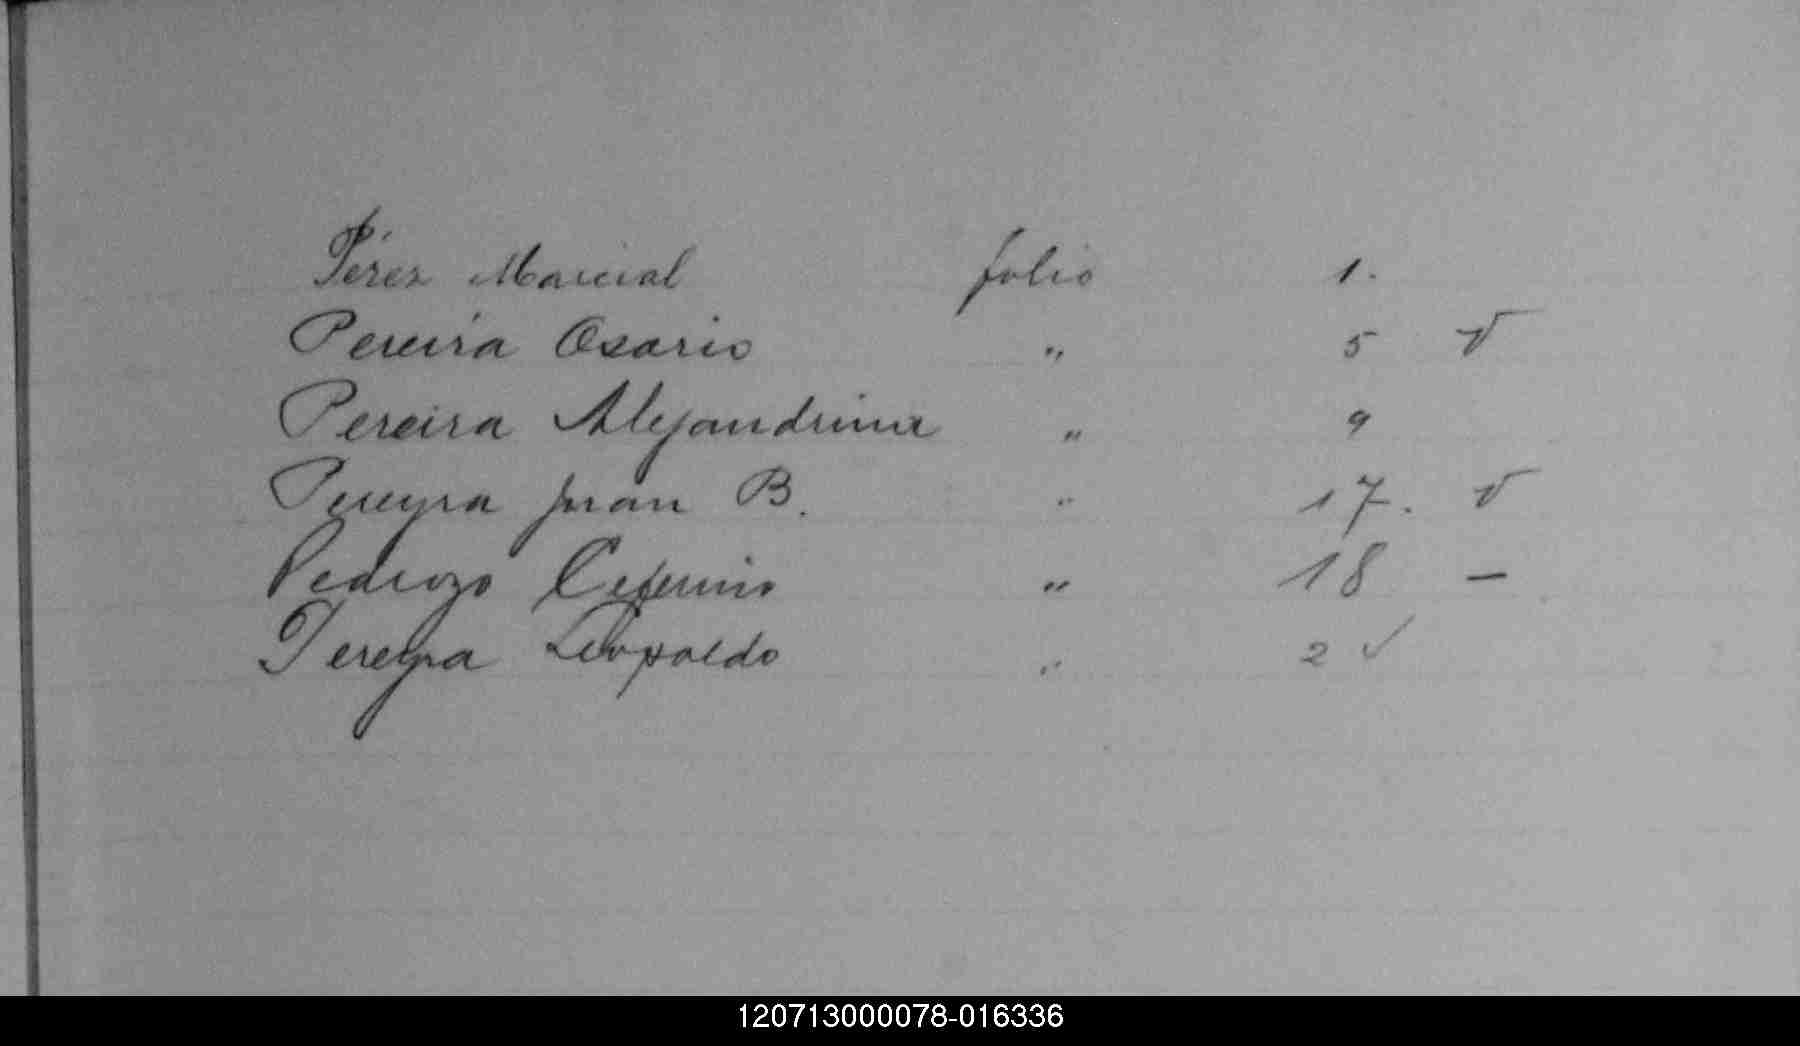 Pérez Marcial folio 1.
Pereira Osorio " 5 v
Pereira Alejandrina " 9
Pereyra Juan B. " 17. v
Pedrozo Ceferino " 18 —
Pereyra Leopoldo " 2 ✓
120713000078-016336